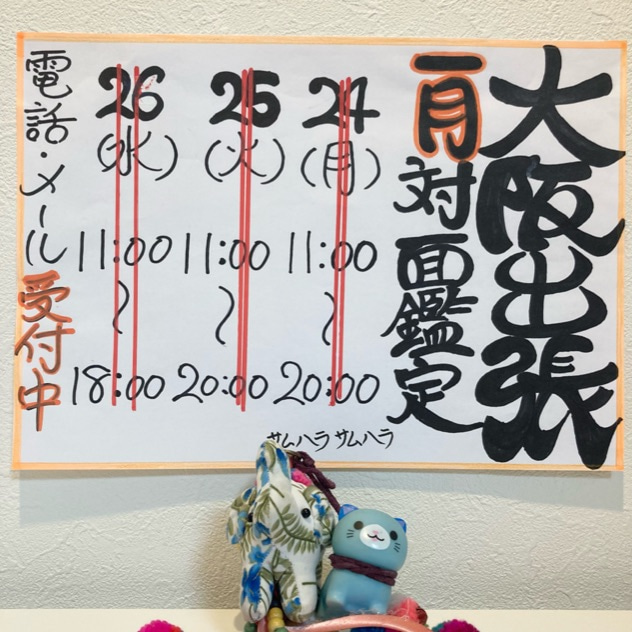 大阪出張
一月対面鑑定
24(月)11:00~20:00
25(火)11:00~20:00
26(水)11:00~18:00
電話・メール受付中
サムハラサムハラ